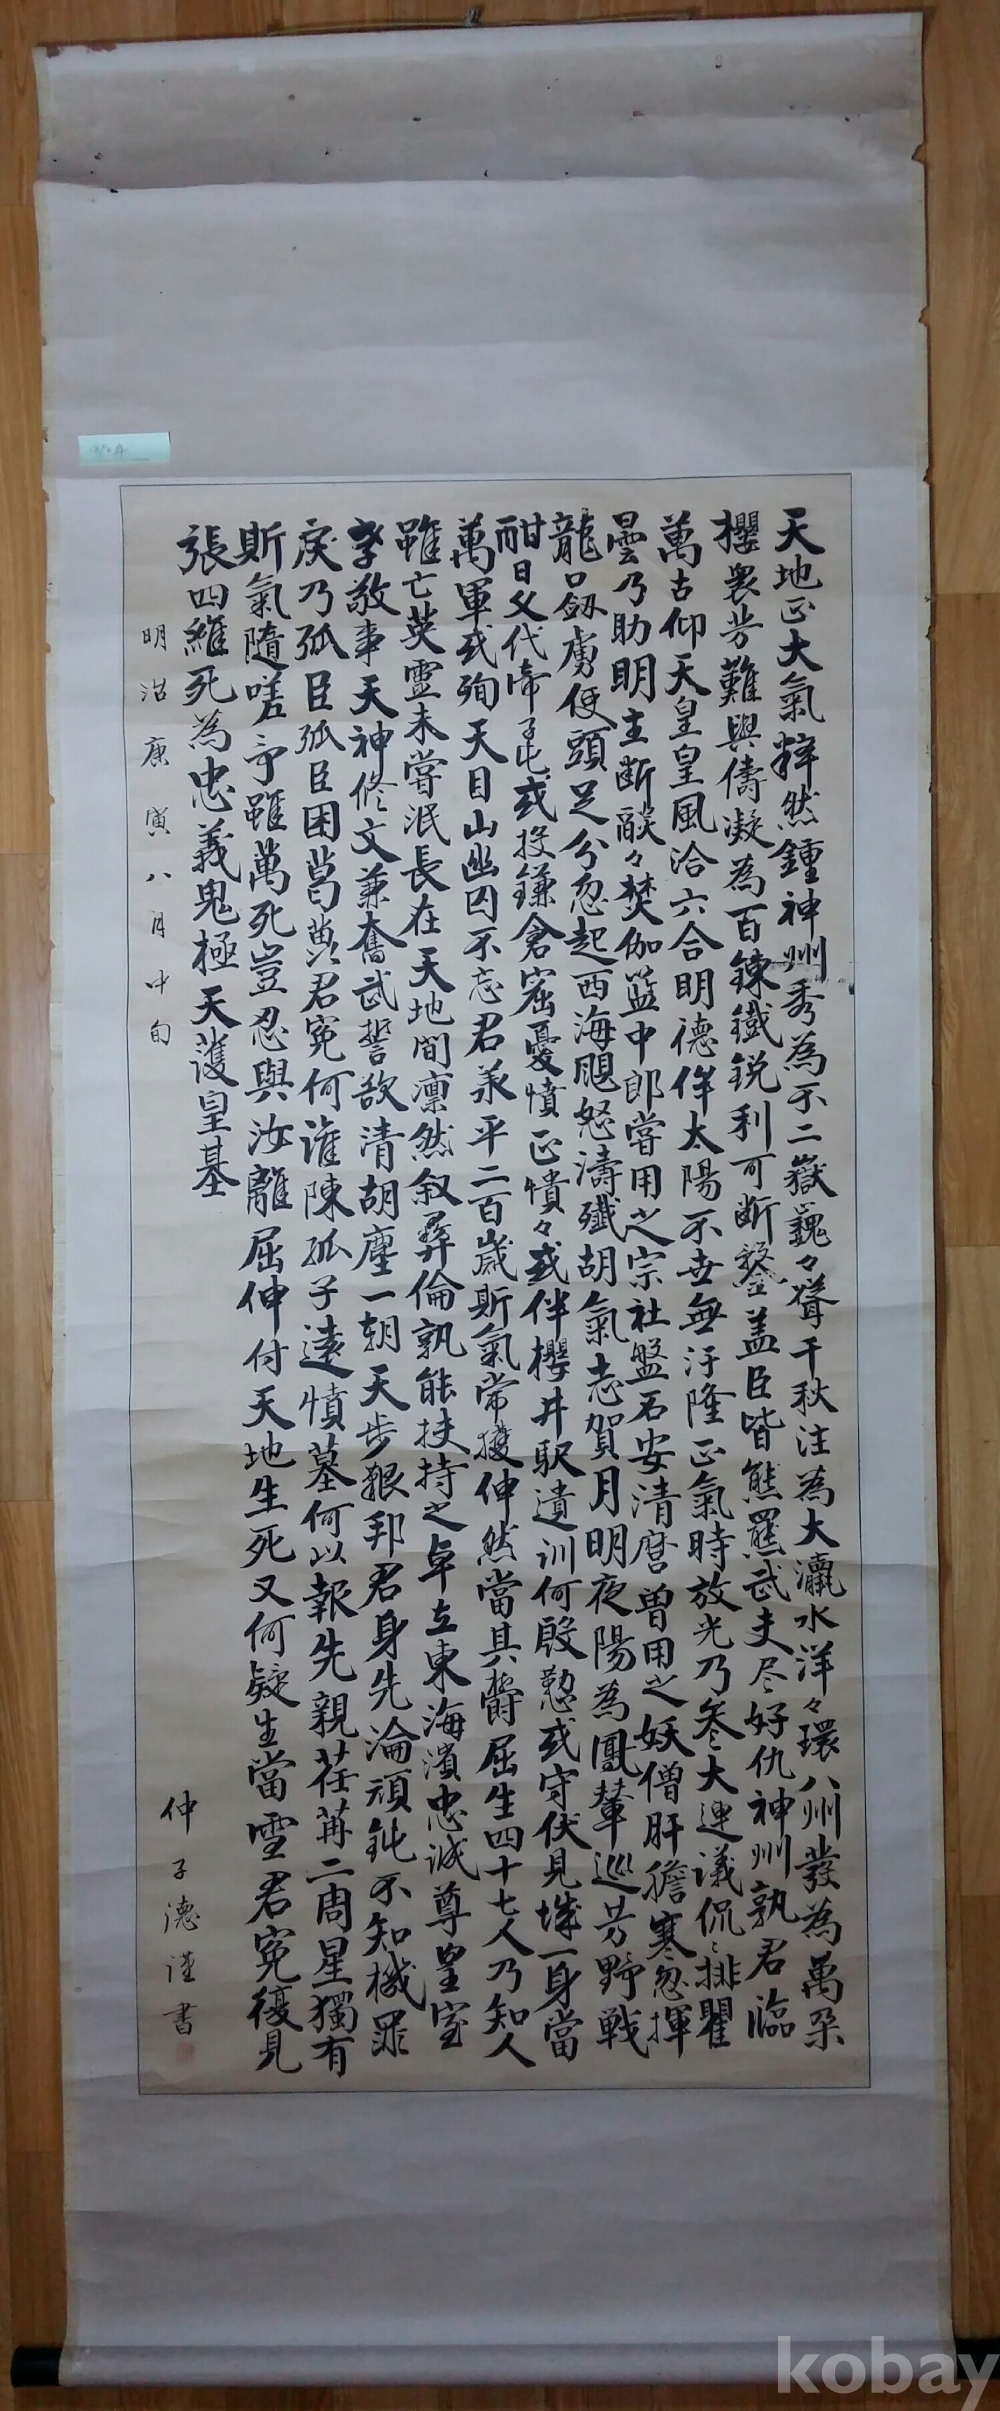 天地正大氣粹然鍾神州秀為不二嶽巍々聳千秋注為大瀛水洋々環八州發為萬朶
櫻衆芳難與儔凝為百錬鐵鋭利可断鍪盖臣皆熊羆武夫尽好仇神州孰君臨
萬古仰天皇皇風洽六合明德侔太陽不世無汙隆正氣時放光乃参大連議侃々排瞿
曇乃助明主断燄々焚伽藍中郎嘗用之宗社盤石安清麿曽用之妖僧肝膽寒忽揮
龍口劔虜使頭足分忽起西海颶怒濤殲胡氣志賀月明夜陽為鳳輦巡芳野戦
酣日父代帝子屯或投鎌倉窟憂憤正憒々或伴櫻井駅遺訓何慇懃或守伏見城一身當
萬軍或殉天目山幽囚不忘君承平二百歳斯氣常獲伸然當其欝屈生四十七人乃知人
雖亡英靈未嘗泯長在天地間凛然叙彛倫孰能扶持之卓立東海濱忠誠尊皇室
孝敬事天神修文兼奮武誓欲清胡塵一朝天歩艱邦君身先淪頑鈍不知機罪
戻乃孤臣孤臣困葛藟君冤何誰陳孤子遠憤墓何以報先親荏苒二周星獨有
斯氣隨嗟予雖萬死豈忍與汝離屈伸付天地生死又何疑生當雪君冤復見
張四維死為忠義鬼極天護皇基
明治庚寅八月中旬
仲子德謹書
kobay